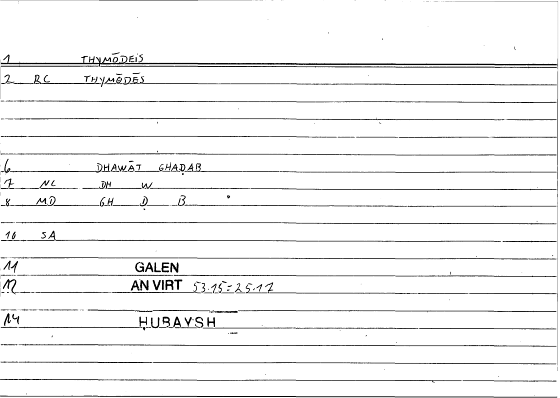 1 THYMŌDEIS
2 RC THYMŌDĒS
6 DHAWĀT GHAḌAB
7 NL DH W
8 MD GH Ḍ B
10 SA
11 GALEN
12 AN VIRT 53.15=25.17
14 ḤUBAYSH